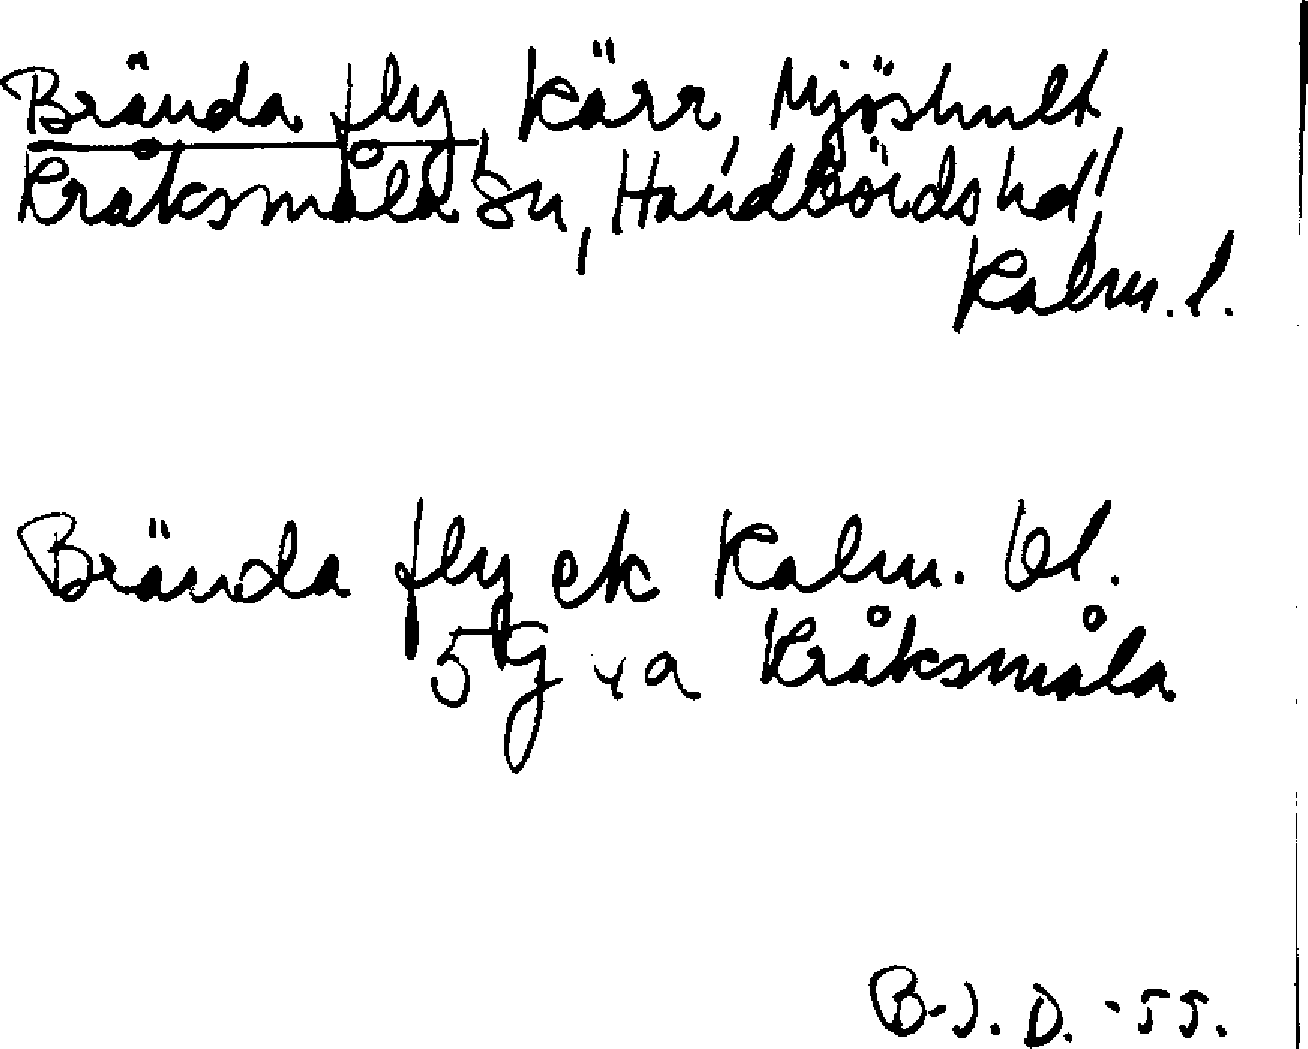 Brända fly, kärr, Mjöshult,
Kråksmåla sn, Handbörds hd,
Kalm. l.
Brända fly ek Kalm. bl.
5 G ya Kråksmåla
B-J. D. -55.